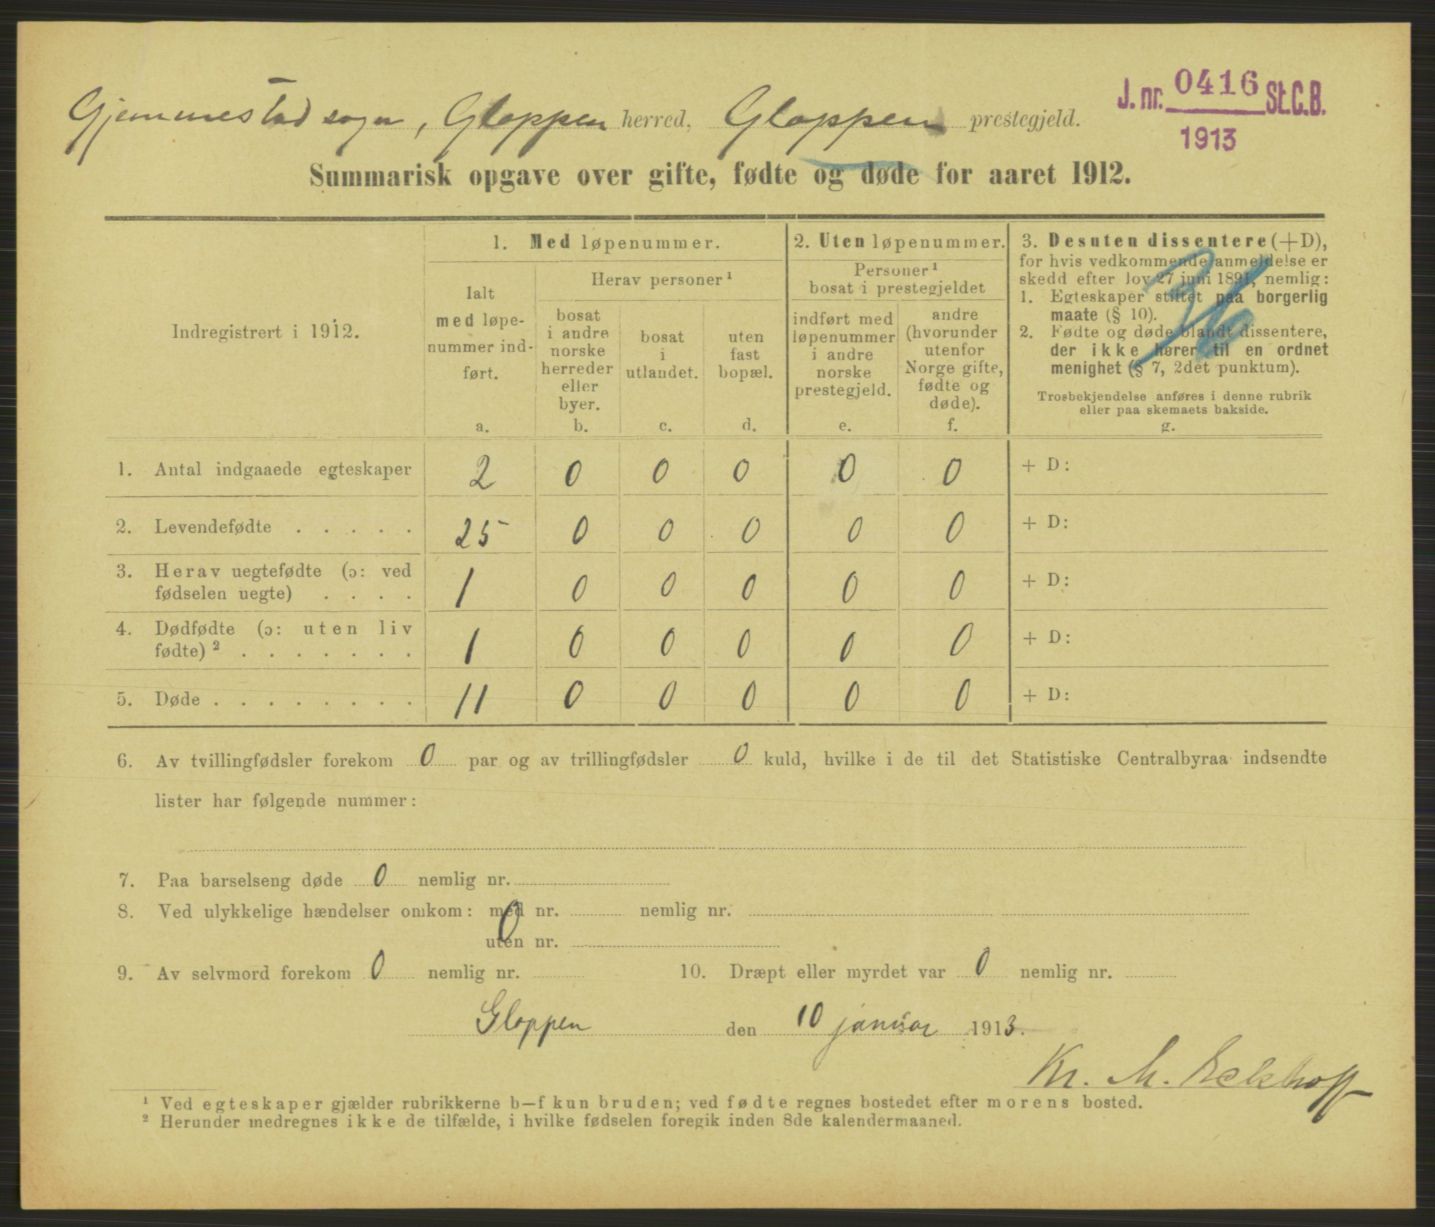 J. nr. 0416 St.C.B.
1913
Gjemmestad sogn, Gloppen herred, Gloppen prestegjeld.
Summarisk opgave over gifte, fødte og døde for aaret 1912.
Indregistrert i 1912.
1. Med løpenummer.
Ialt med løpenummer indført.
a.
Herav personer ¹
bosat i andre norske herreder eller byer.
b.
bosat i utlandet.
c.
uten fast bopæl.
d.
2. Uten løpenummer.
Personer ¹
bosat i prestegjeldet
indført med løpenummer i andre norske prestegjeld.
e.
andre (hvorunder utenfor Norge gifte, fødte og døde).
f.
3. Desuten dissentere (+D),
for hvis vedkommende anmeldelse er
skedd efter lov 27 juni 1891, nemlig:
1. Egteskaper stiftet paa borgerlig
maate (§ 10).
2. Fødte og døde blandt dissentere,
der ikke hører til en ordnet
menighet (§ 7, 2det punktum).
Trosbekjendelse anføres i denne rubrik
eller paa skemaets bakside.
g.
36
1. Antal indgaaede egteskaper 2 0 0 0 0 0 + D:
2. Levendefødte . . . . . 25 0 0 0 0 0 + D:
3. Herav uegtefødte (ɔ: ved
fødselen uegte) . . . . 1 0 0 0 0 0 + D:
4. Dødfødte (ɔ: uten liv
fødte) ² . . . . . . . 1 0 0 0 0 0 + D:
5. Døde . . . . . . . . 11 0 0 0 0 0 + D:
6. Av tvillingfødsler forekom 0 par og av trillingfødsler 0 kuld, hvilke i de til det Statistiske Centralbyraa indsendte
lister har følgende nummer:
7. Paa barselseng døde 0 nemlig nr.
8. Ved ulykkelige hændelser omkom: med nr. nemlig nr.
0
uten nr.
9. Av selvmord forekom 0 nemlig nr. 10. Dræpt eller myrdet var 0 nemlig nr.
Gloppen den 10 januar 1913.
Kr. M. Eckhoff
¹ Ved egteskaper gjælder rubrikkerne b—f kun bruden; ved fødte regnes bostedet efter morens bosted.
² Herunder medregnes ikke de tilfælde, i hvilke fødselen foregik inden 8de kalendermaaned.